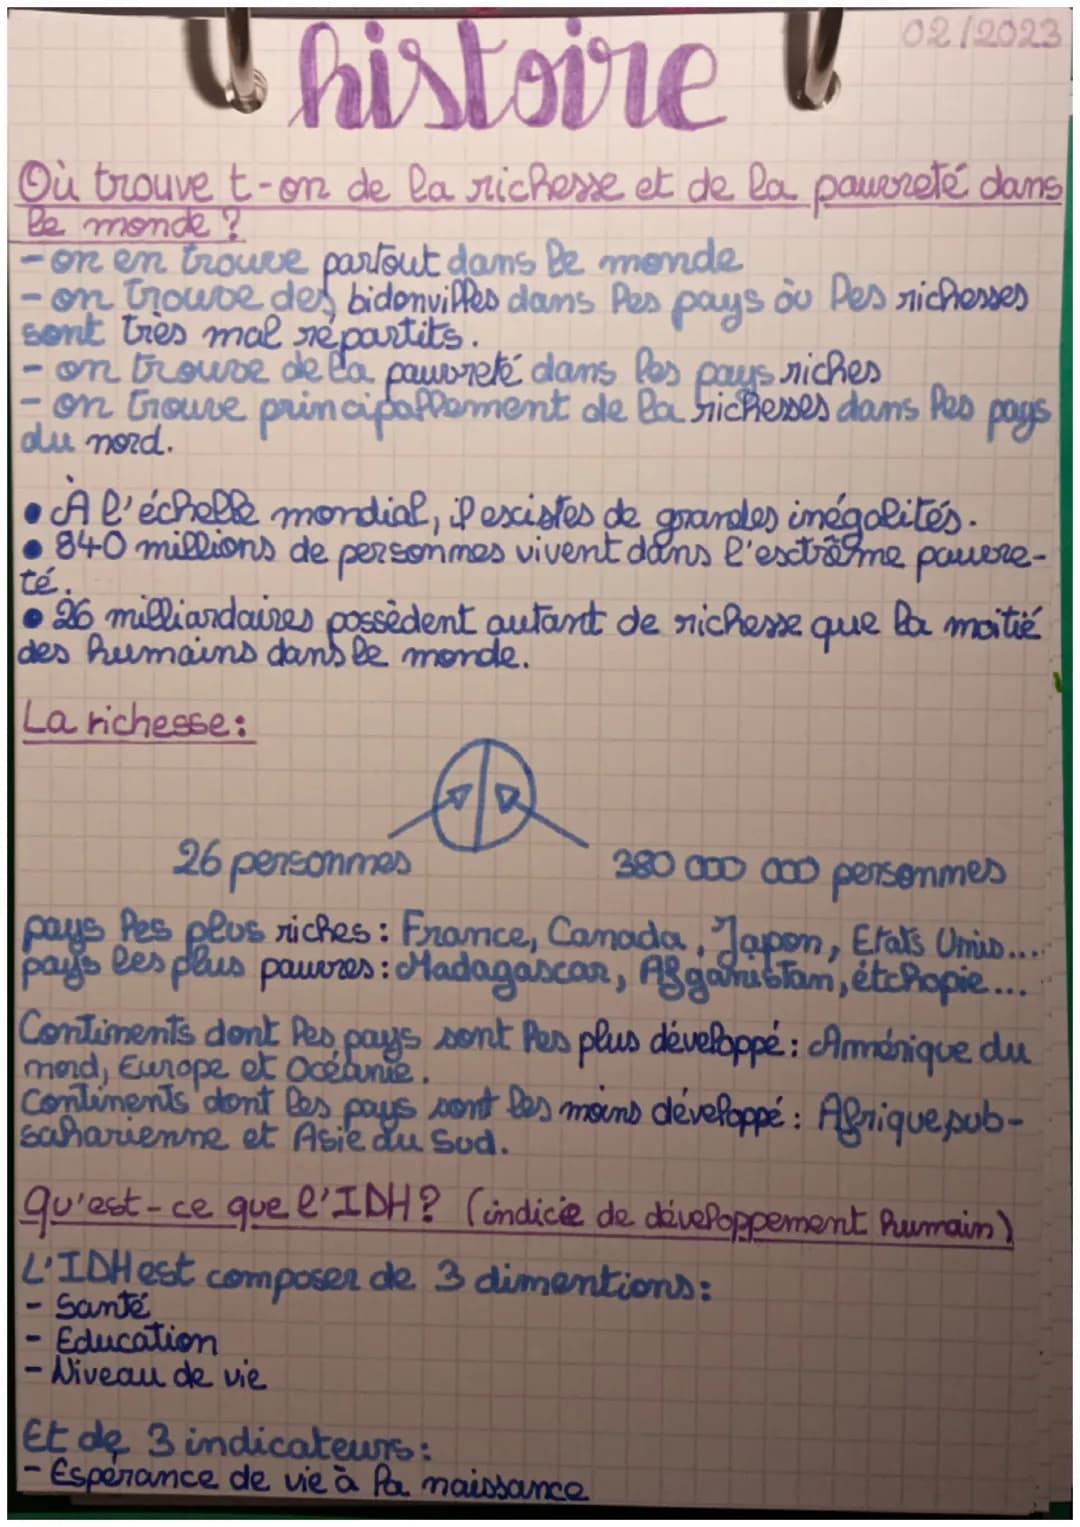 02/2023
histoire
Où trouve t-on de la richesse et de la pauvreté dans
le monde ?
- on en trouve partout dans le monde
- on trouve des bidonvilles dans les pays où les richesses
sont très mal répartits.
- on trouve de la pauvreté dans les pays riches
- on trouve principallement de la richesses dans les pays
du nord.
• À l'échelle mondial, il escistes de grandes inégalités.
• 840 millions de personnes vivent dans l'esctrême pauvre-
té.
• 26 milliardaires possèdent autant de richesse que la moitié
des humains dans le monde.
La richesse :
26 personnes
380 000 000 personnes
pays les plus riches : France, Canada, Japon, Etats Unis....
pays les plus pauvres : Madagascar, Afganistan, étchopie...
Continents dont les pays sont les plus développé : Amérique du
nord, Europe et Océanie.
Continents dont les pays sont les moins développé : Afrique sub-
saharienne et Asie du Sud.
Qu'est-ce que l'IDH ? (indicie de développement humain)
L'IDH est composer de 3 dimentions :
- Santé
- Education
- Niveau de vie
Et de 3 indicateurs :
- Espérance de vie à la naissance